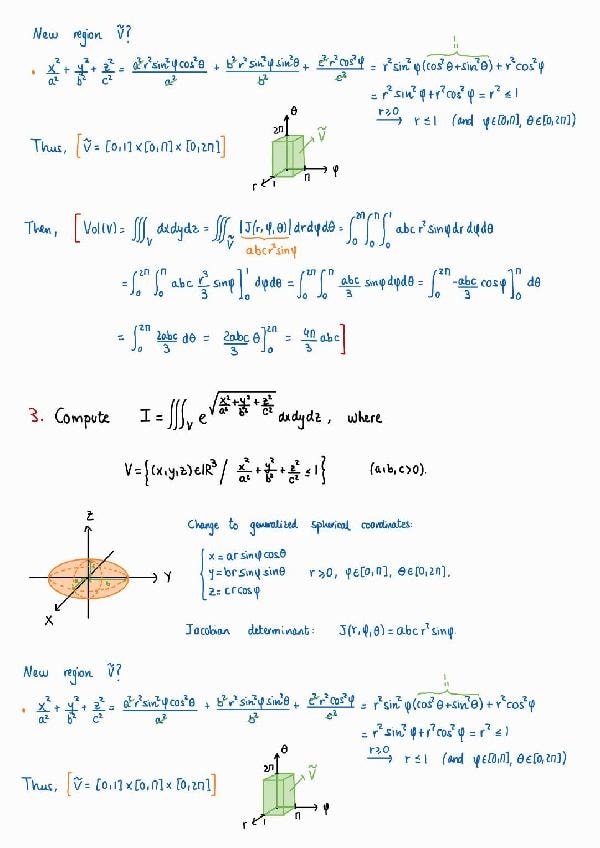 New region Ṽ?
1
• x²/a² + y²/b² + z²/c² = a²r²sin²φcos²θ/a² + b²r²sin²φsin²θ/b² + c²r²cos²φ/c² = r²sin²φ(cos²θ+sin²θ) + r²cos²φ
= r²sin²φ+r²cos²φ = r² ≤ 1
r≥0 → r ≤ 1 (and φ∈[0,π], θ∈[0,2π])
Thus, [Ṽ = [0,1]×[0,π]×[0,2π]]
θ
2π
Ṽ
r 1 π φ
Then, [Vol(V) = ∭_V dxdydz = ∭_Ṽ |J(r,φ,θ)| drdφdθ = ∫₀^2π ∫₀^π ∫₀^1 abc r² sinφ dr dφdθ
abcr²sinφ
= ∫₀^2π ∫₀^π abc r³/3 sinφ]₀^1 dφdθ = ∫₀^2π ∫₀^π abc/3 sinφdφdθ = ∫₀^2π -abc/3 cosφ]₀^π dθ
= ∫₀^2π 2abc/3 dθ = 2abc/3 θ]₀^2π = 4π/3 abc]
3. Compute I = ∭_V e^√(x²/a²+y²/b²+z²/c²) dxdydz, where
V = {(x,y,z)∈ℝ³ / x²/a²+y²/b²+z²/c² ≤ 1} (a,b,c>0).
Z
Y
X
Change to generalized spherical coordinates:
{ x = ar sinφ cosθ
y = br sinφ sinθ r≥0, φ∈[0,π], θ∈[0,2π].
z = cr cosφ
Jacobian determinant: J(r,φ,θ) = abc r² sinφ.
New region Ṽ?
1
• x²/a² + y²/b² + z²/c² = a²r²sin²φcos²θ/a² + b²r²sin²φsin²θ/b² + c²r²cos²φ/c² = r²sin²φ(cos²θ+sin²θ) + r²cos²φ
= r²sin²φ+r²cos²φ = r² ≤ 1
r≥0 → r ≤ 1 (and φ∈[0,π], θ∈[0,2π])
Thus, [Ṽ = [0,1]×[0,π]×[0,2π]]
θ
2π
Ṽ
r 1 π φ